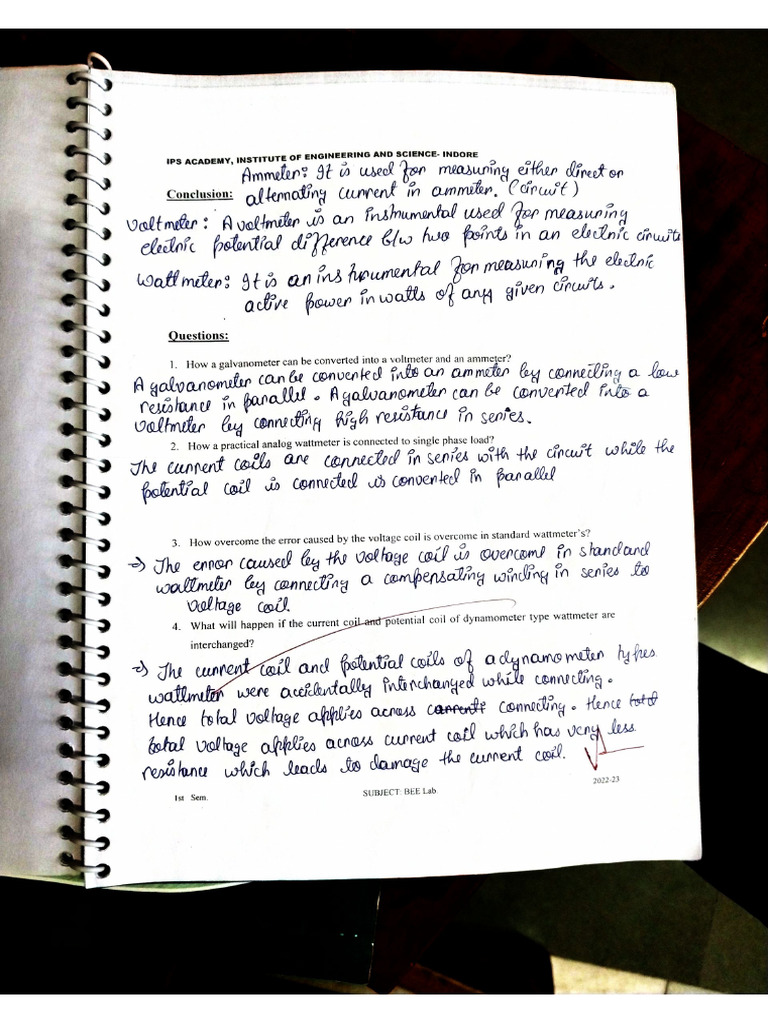 IPS ACADEMY, INSTITUTE OF ENGINEERING AND SCIENCE- INDORE
Ammeter: It is used for measuring either direct or
Conclusion: alternating current in ammeter. (circuit)
Voltmeter: A voltmeter is an instrumental used for measuring
electric potential difference b/w two points in an electric circuits
Wattmeter: It is an instrumental for measuring the electric
active power in watts of any given circuits.
Questions:
1. How a galvanometer can be converted into a voltmeter and an ammeter?
A galvanometer can be converted into an ammeter by connecting a low
resistance in parallel. A galvanometer can be converted into a
voltmeter by connecting high resistance in series.
2. How a practical analog wattmeter is connected to single phase load?
The current coils are connected in series with the circuit while the
potential coil is connected is converted in parallel
3. How overcome the error caused by the voltage coil is overcome in standard wattmeter's?
⇒ The error caused by the voltage coil is overcome in standard
wattmeter by connecting a compensating winding in series to
voltage coil.
4. What will happen if the current coil and potential coil of dynamometer type wattmeter are
interchanged?
⇒ The current coil and potential coils of a dynamometer types
wattmeter were accidentally interchanged while connecting.
Hence total voltage applies across current connecting. Hence total
total voltage applies across current coil which has very less
resistance which leads to damage the current coil.
2022-23
1st Sem. SUBJECT: BEE Lab.